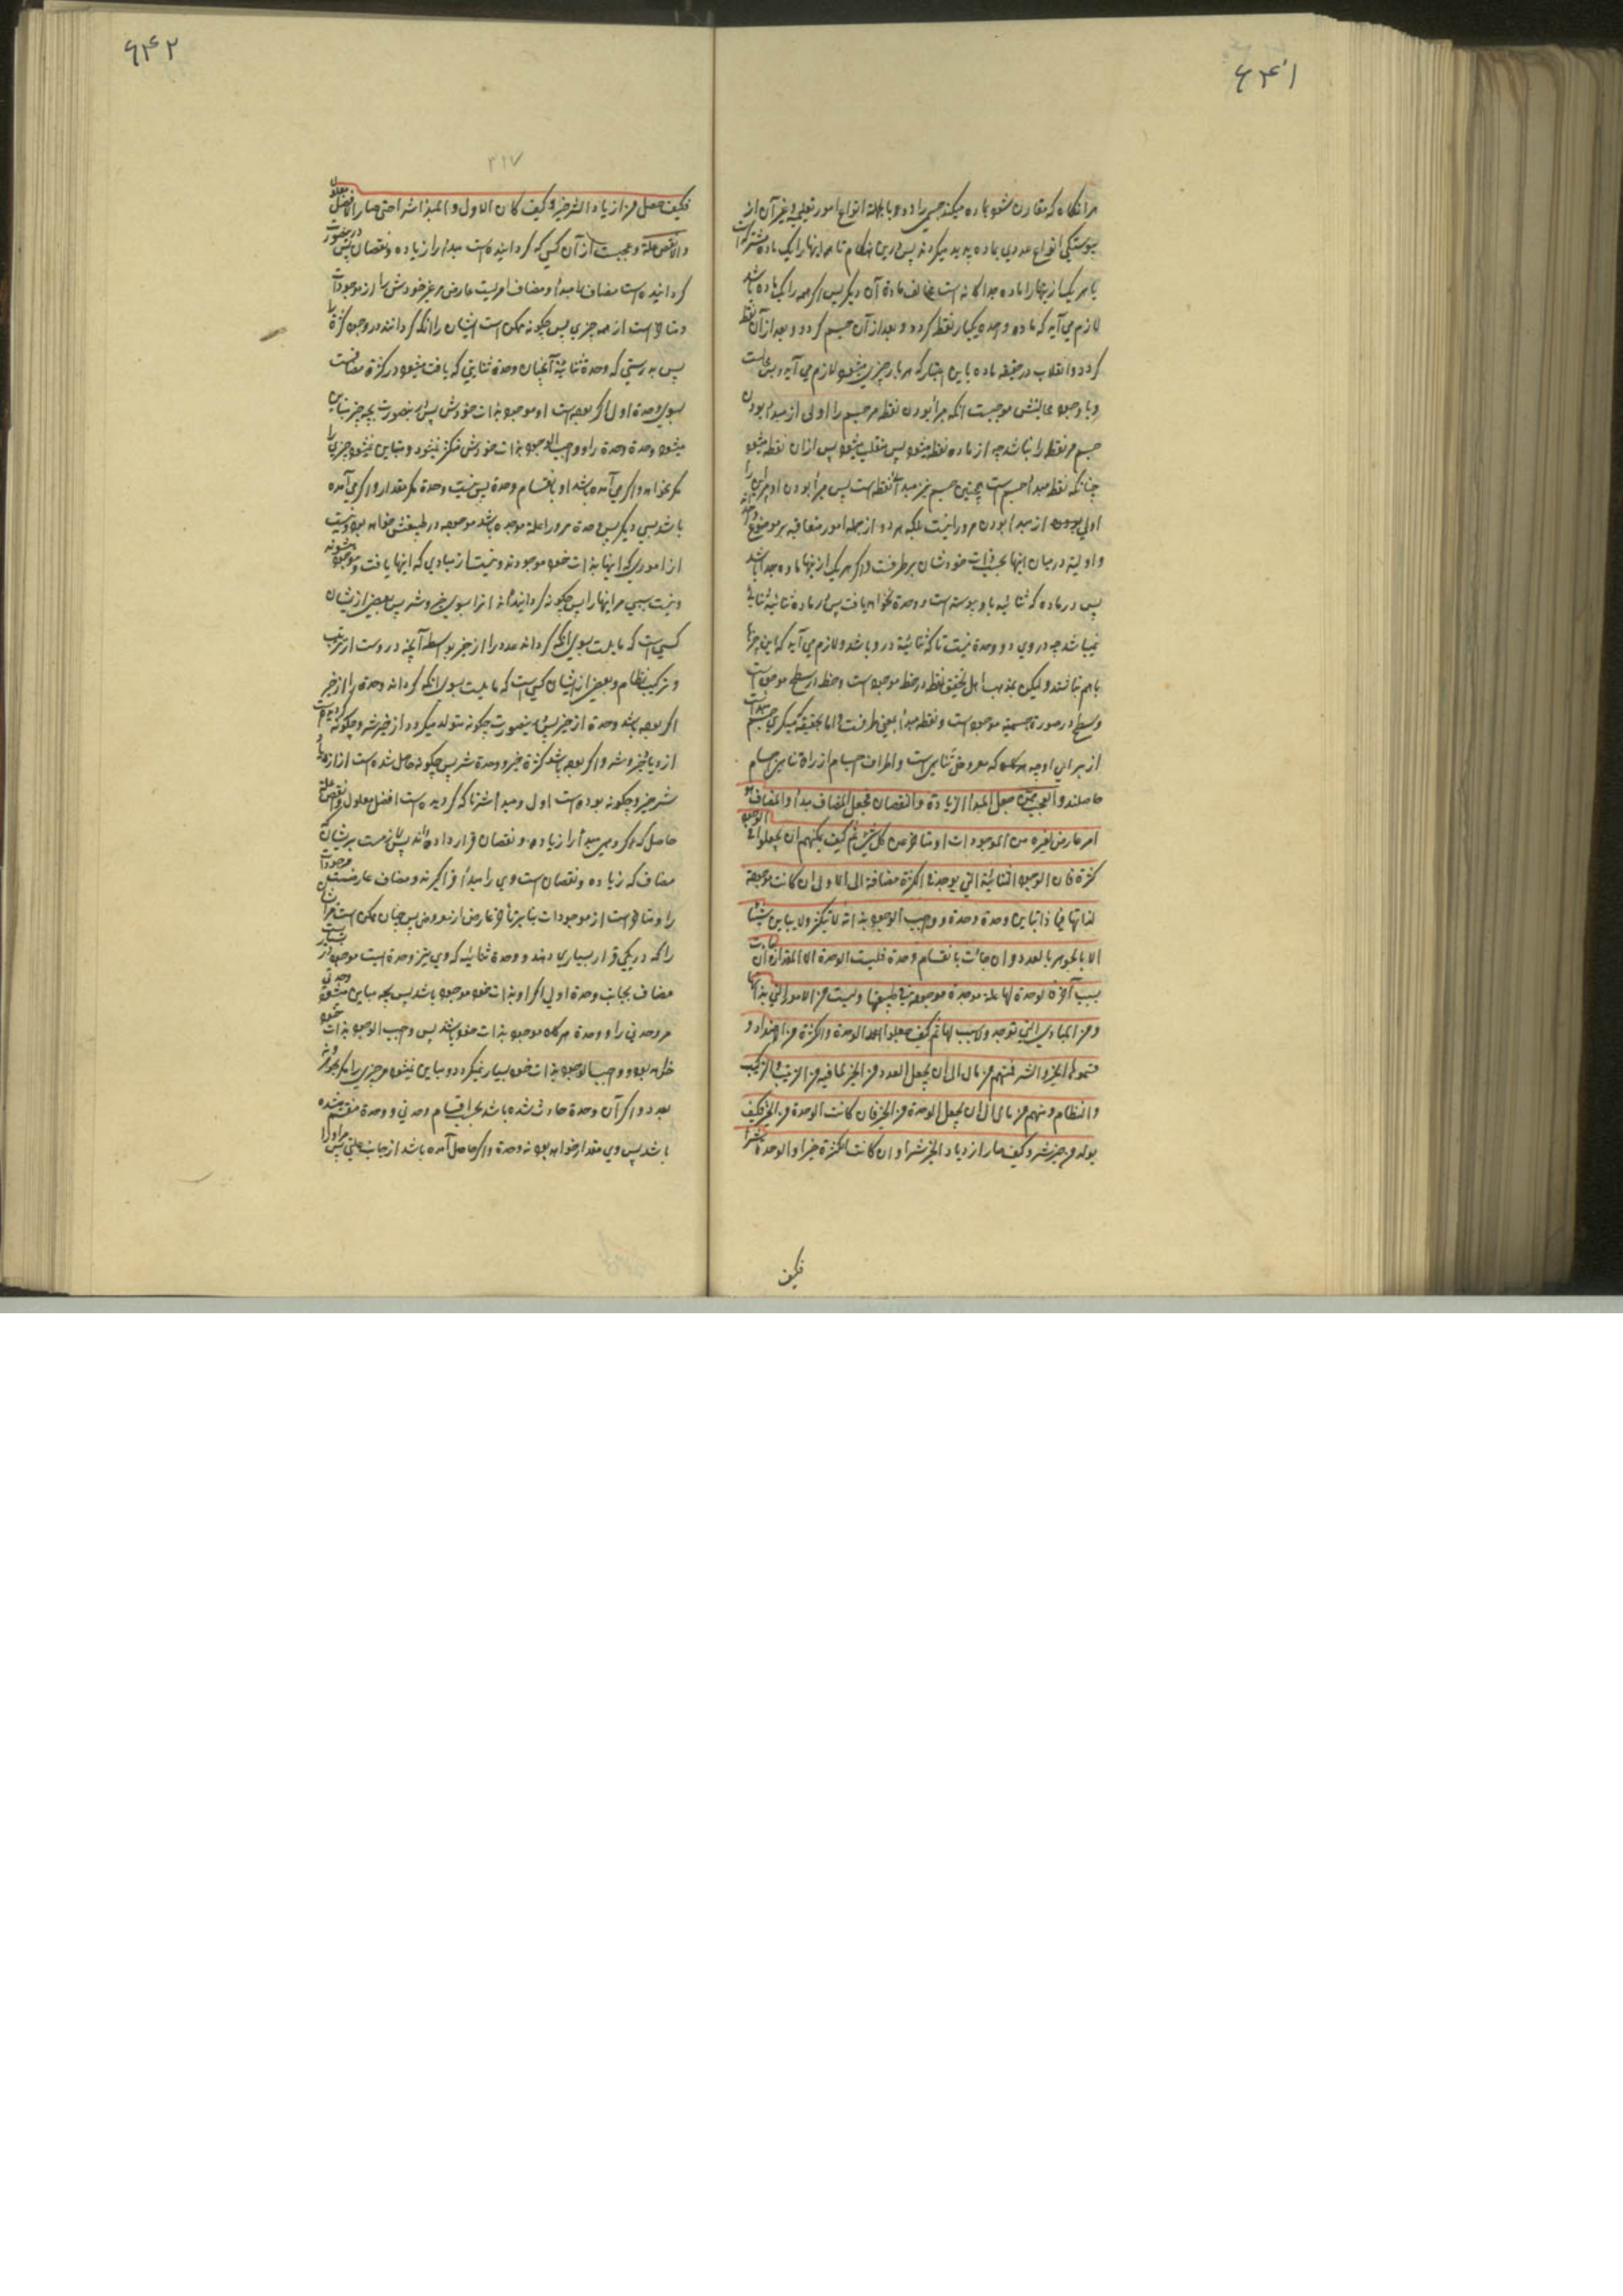 ۶۴۱
هر آنگاه که مقارن شود بماده میکند جسمی را و وبا بجمله انواع امور تعلیمی و غیر آن از
پیوستگی انواع عددی بماده پدید میگردند پس درین هنگام تا مر اینها را یک ماده مشترکست
یا هر یک از اینها را ماده جداگانه است مخالف ماده آن دیگر پس اگر همه را یک ماده باشد
لازم می آید که ماده واحده یکبار نقطه گردد و بعد از آن جسم گردد و بعد از آن نقطه
گردد و انقلاب در حقیقه ماده باین اعتبار که هر بار چیزی میشود لازم می آید
و با وجود موجبست آنکه مبدأ بودن نقطه مر جسم را اولی از مبدأ بودن
جسم مر نقطه را نباشد چه از ماده نقطه میشود پس منقلب میشود پس از آن نقطه میشود
چنانکه نقطه مبدأ جسم است همچنین جسم نیز مبدأ نقطه است پس مبدأ بودن او مر این را
اولی بودن از مبدأ بودن مر ورا نیست بلکه هر دو از جمله امور متعاقبه بر موضوع واحد
و اولیة در میان اینها بحسب ذات خودشان برطرفست و اگر هر یک از اینها ماده جدا باشد
پس در ماده که ثنائیه باو پیوسته است وحدة نخواهد یافت پس در ماده ثنائیه ثنائی
نمیباشد چه در وی دو وحدة نیست تا که ثنائیة درو باشد و لازم می آید که این چیزها
باهم نباشند و لیکن بمذهب اهل تحقیق نقطه در خط موجود است و خط در سطح موجود است
و سطح در صورة جسمیه موجود است و نقطه مبدأ بمعنی طرفست و اما بحقیقة جسم مبدأست
از برای او چه که معروض تناهی است و اطراف اجسام از راه تناهی اجسام
حاصلند والعجب ممن جعل المبدأ الزیادة والنقصان فجعل المضاف مبدأ والمضاف هو
امر عارض لغیره من الموجودات و متأخر من کل شئ ثم کیف یمکنهم ان یجعلوا فی الوجود
کثرة فان الوجود الثنائیة التی یوجدها الکثرة مضافة الی الاولی ان کانت موجودة
لذاتها فبماذا تباین وحدة وحدة و واجب الوجود بذاته لا یتکثر ولا یباین شیئا
الا بالجوهر بالعدد و ان جائت بانقسام وحدة فلیست الوحدة الا المقدار و ان کانت
بسبب آخر فالوحدة لها علة موجدة موجودة فی طبیعتها ولیست من الامور التی بذاتها
و من المبادی التی توجد ولا سبب لها ثم کیف جعلوا الوحدة والکثرة من الاضداد و
قسموها الخیر والشر فمنهم من مال الی ان یجعل العدد من الخیر لما فیه من الترتیب والترکیب
والنظام ومنهم من مال الی ان یجعل الوحدة من الخیر فان کانت الوحدة من الخیر فکیف
یولد من خیر شر وکیف صار ازدیاد الخیر شرا و ان کانت الکثرة خیرا والوحدة شرا
فکیف
۶۴۲
۳۱۷
فکیف حصل من ازدیاد الشر خیر و کیف کان الاول والمبدأ شرا حتی صار الافضل معلولا
والانقص علة و عجبست از آن کسی که گردانیده است مبدأ را زیاده و نقصان پس درینصورت
گردانیده است مضاف را مبدأ و مضاف امریست عارض مر غیر خودش را از موجودات
و متأخر است از همه چیزی پس چگونه ممکن است ایشان را آنکه گردانند در وجود کثرة را
پس بدرستی که وحدة ثنائیة آنچنان وحدة ثنایتی که یافت میشود در کثرة مضافست
بسوی وحدة اول اگر بوده است او موجود بذات خودش پس درینصورت بچه چیز مباین
میشود وحدة وحدة را و واجب الوجود بذات خودش متکثر نمیشود و مباین نمیشود چیزی را
مگر بجوهر و اگر می آمده باشد او بانقسام وحدة پس نیست وحدة مگر مقدار و اگر می آمده
باشد بسببی دیگر پس وحدة مر ورا علة موجده باشد موجود در طبیعتش خواهد بود و نیست
از اموری که اینها بذات خود موجودند و نیست از مبادی که اینها یافت و موجود میشوند
و نیست سببی مر اینها را پس چگونه گردانیده اند آنرا بسوی خیر و شر پس بعضی از ایشان
کسی است که مایلست بسوی آنکه گرداند عدد را از خیر بواسطه آنچه دروست از ترتیب
و ترکیب نظام و بعضی از ایشان کسی است که مایلست بسوی آنکه گرداند وحدة را از خیر
اگر بوده باشد وحدة از خیر پس درینصورت چگونه متولد میگردد از خیر شر و چگونه گردیده است
ازدیاد خیر شر و اگر بوده باشد کثرة خیر و وحدة شر پس چگونه حاصل شده است از ازدیاد
شر خیر و چگونه بوده است اول و مبدأ شر تا که گردیده است افضل معلول و انقص علة
حاصل که مبدأ را زیاده و نقصان قرار داده اند پس لازمست بر ایشان
مضاف که زیاده و نقصان است وی را مبدأ فراگیرند و مضاف عارضست موجودات
را و متأخر است از موجودات بنا بر تأخر عارض از معروض پس چسان ممکن است مر ایشان
را که در یکی قرار بسیاری دهند و وحدة ثنائیه که وی نیز وحدة است موجود
مضاف بجانب وحدة اولی اگر او بذات خود موجود باشد پس بچه مباین میشود وحدتی
مر وحدتی را و وحدة هر گاه موجود بذات خود باشد پس واجب الوجود بذات خود
خواهد بود و واجب الوجود بذات خود بسیار نمیگردد و مباین نمیشود چیزی را مگر بجوهر
بعدد و اگر آن وحدة حادث شده باشد بحسب انقسام وحدتی و وحدة منقسم شده
باشد پس وی مقدار خواهد بود نه وحدة و اگر حاصل آمده باشد از جانب علتی پس مر او را